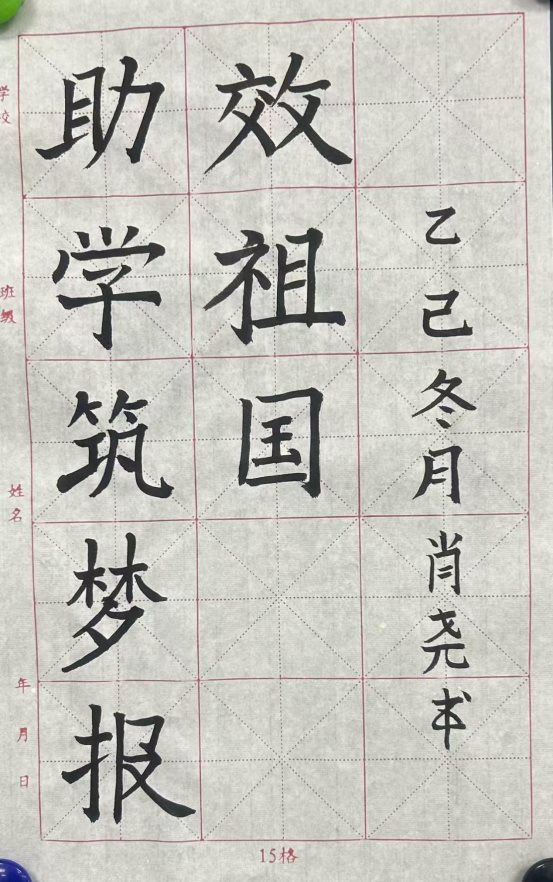 学校
班级
姓名
年 月 日
助学筑梦报
效祖国
乙己冬月肖尧书
15格